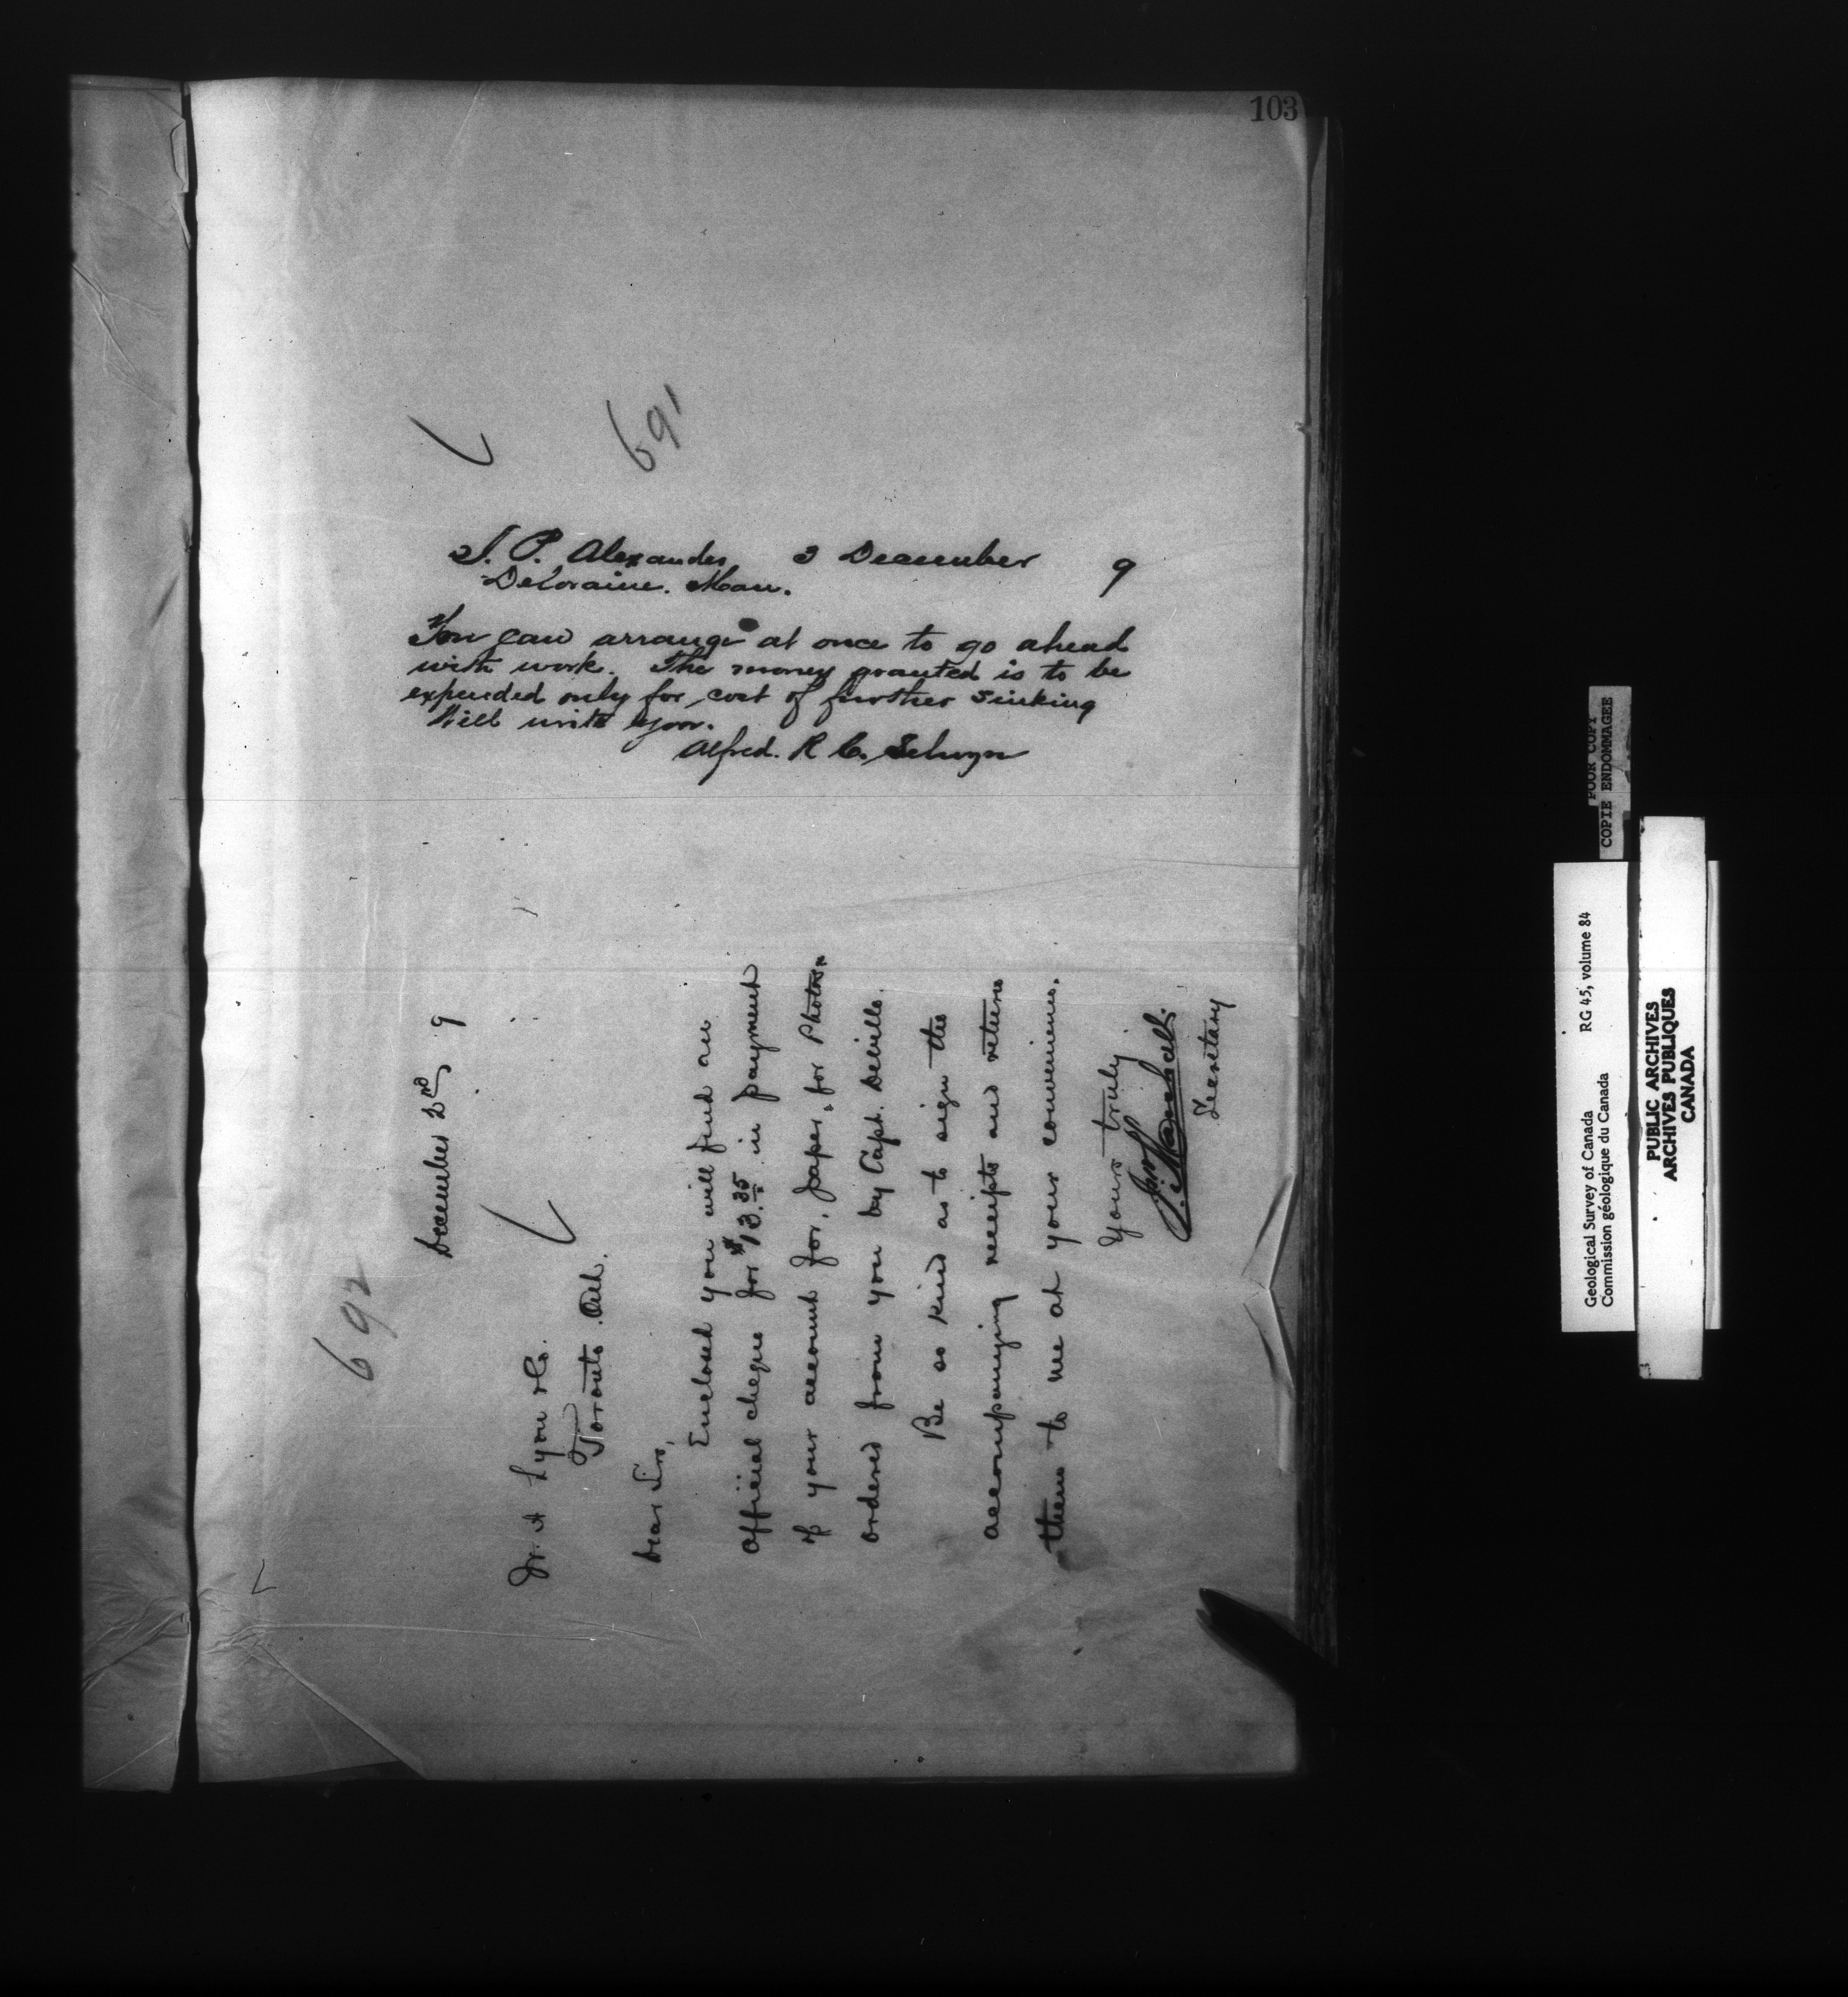 103
691
J. P. Alexander, 3 December 9
Deloraine. Man.
You can arrange at once to go ahead
with work. The money granted is to be
expended only for cost of further sinking
Will write you.
Alfred. R C. Selwyn
692
December 2nd 9
Jr. A Lyon & Co.
Toronto Ont.
Dear Sirs,
Enclosed you will find an
Official cheque for $13.35 in payment
of your account for, paper, for Photos
ordered from you by Capt. Deville.
Be so kind as to sign the
accompanying receipts and return
them to me at your convenience.
Yours truly
Jno Marshall.
Secretary
POOR COPY
COPIE ENDOMMAGEE
Geological Survey of Canada RG 45, volume 84
Commission géologique du Canada
PUBLIC ARCHIVES
ARCHIVES PUBLIQUES
CANADA